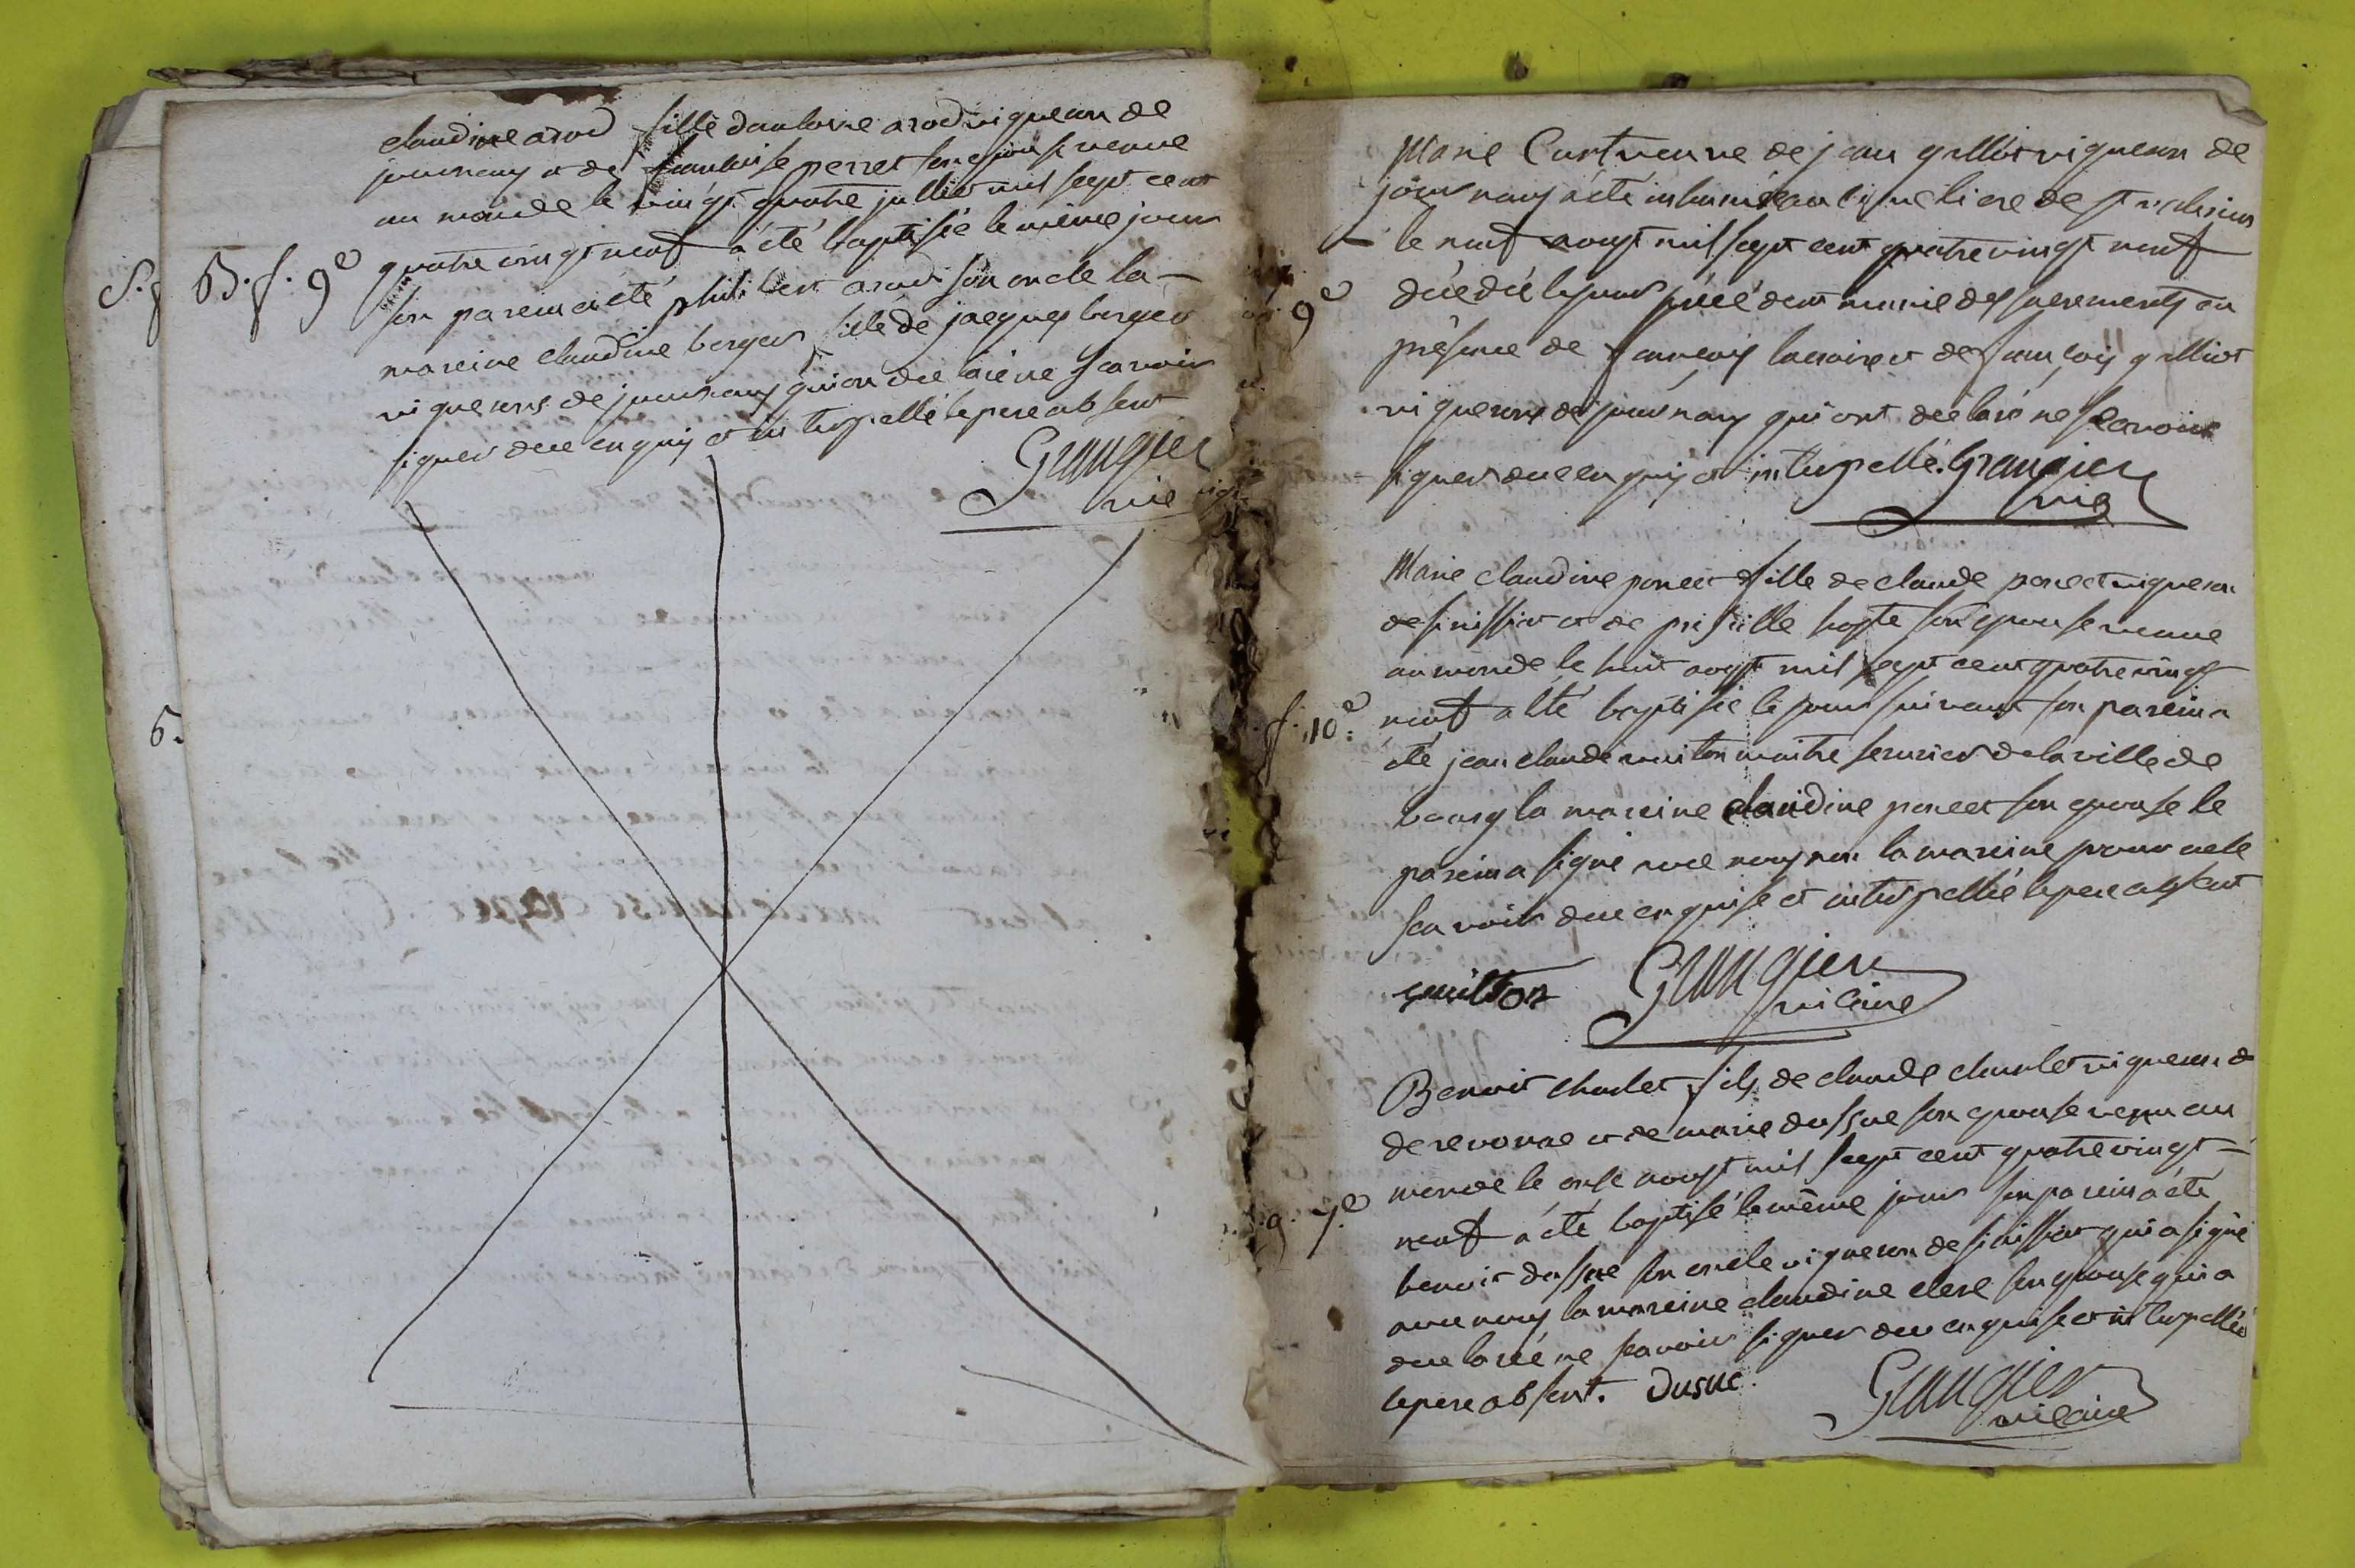 claudine arod fille dantoine arod vigneron de
journans et de francoise perret son epouse venue
au monde le vingt quatre juillet mil sept cent
B. f. 9e quatre vingt neuf a été baptisée le même jour
son parein a été philibert arod son oncle la
mareine claudine berger fille de jacques berger
vignerons de journans qui ont declaré ne scavoir
signer de ce enquis et interpellé le pere absent
Grangier
vic
Marie Curt veuve de jean galliot vigneron de
journans a été inhumée au cimetiere de st
le neuf aoust mil sept cent quatre vingt neuf
9e décédé le jour précédent munie des sacrements en
présence de francois et de francois galliot
vignerons de journans qui ont declaré ne scavoir
signer de ce enquis et interpellé. Grangier
vic
Marie claudine poncet fille de claude poncet vigneron
de sinissiat et de prisille son epouse venue
au monde le huit aoust mil sept cent quatre vingt
f. 10e neuf a été baptisée le jour suivant son parein a
été jean claude vuiton maitre serurier de la ville de
bourg la mareine claudine poncet son epouse le
parein a signé avec nous non la mareine pour ne le
scavoir de ce enquise et interpellée le pere absent
Grangier
vicaire
Benoit charlet fils de claude charlet vigneron d
de revonas et de marie dussue son epouse venu au
monde le onse aoust mil sept cent quatre vingt
g. 7e neuf a été baptisé le même jour son parein a été
benoit dussue son oncle vigneron de sinissiat qui a signé
avec nous la mareine claudine clerc son epouse qui a
declaré ne scavoir signer de ce enquise et interpellée
le pere absent. Dusuc
Grangier
vicaire